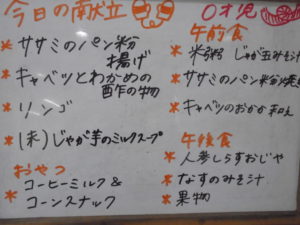 今日の献立
* ササミのパン粉
揚げ
* キャベツとわかめの
酢の物
* リンゴ
* (未)じゃが芋のミルクスープ
おやつ
* コーヒーミルク&
コーンスナック
0才児
午前食
* 米粥 じゃが玉みそ汁
* ササミのパン粉焼き
* キャベツのおかか和え
午後食
* 人参しらすおじや
* なすのみそ汁
* 果物